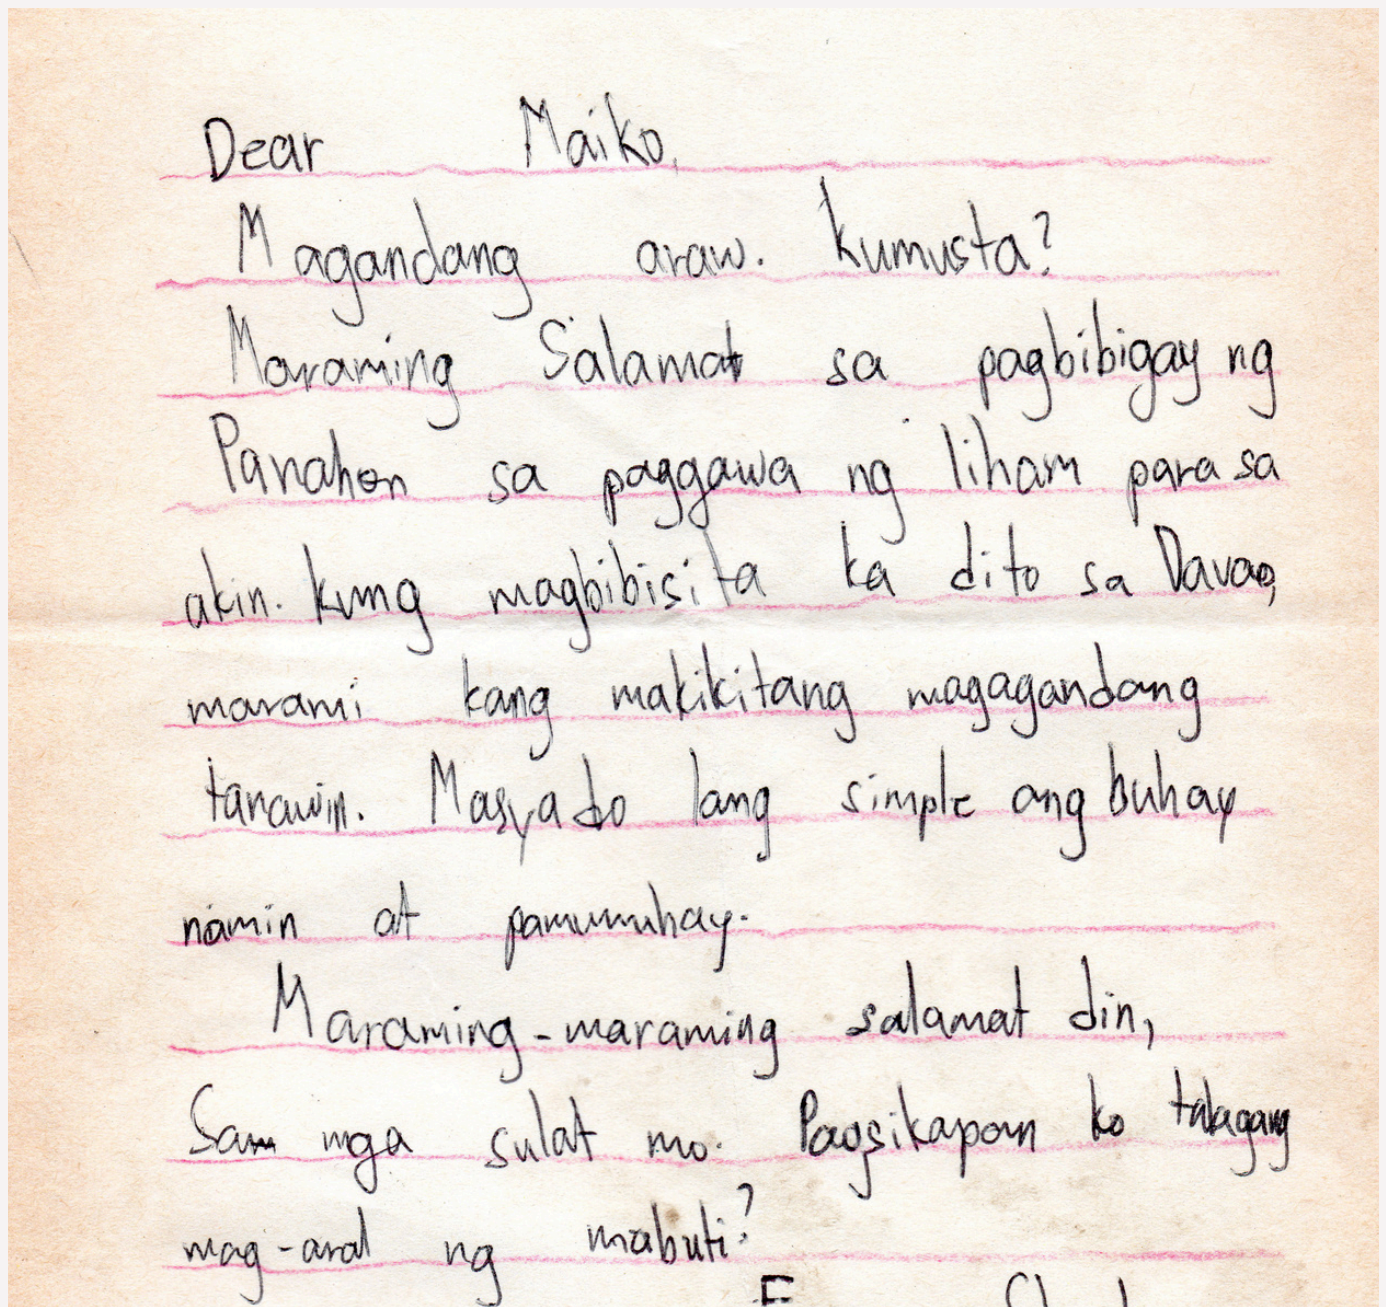 Dear Maiko,
Magandang araw. Kumusta?
Maraming Salamat sa pagbibigay ng
Panahon sa paggawa ng liham para sa
akin. Kung magbibisita ka dito sa Davao,
marami kang makikitang magagandang
tanawin. Masyado lang simple ang buhay
namin at pamumuhay.
Maraming-maraming salamat din,
Sa mga sulat mo. Pagsikapan ko talagang
mag-aral ng mabuti?